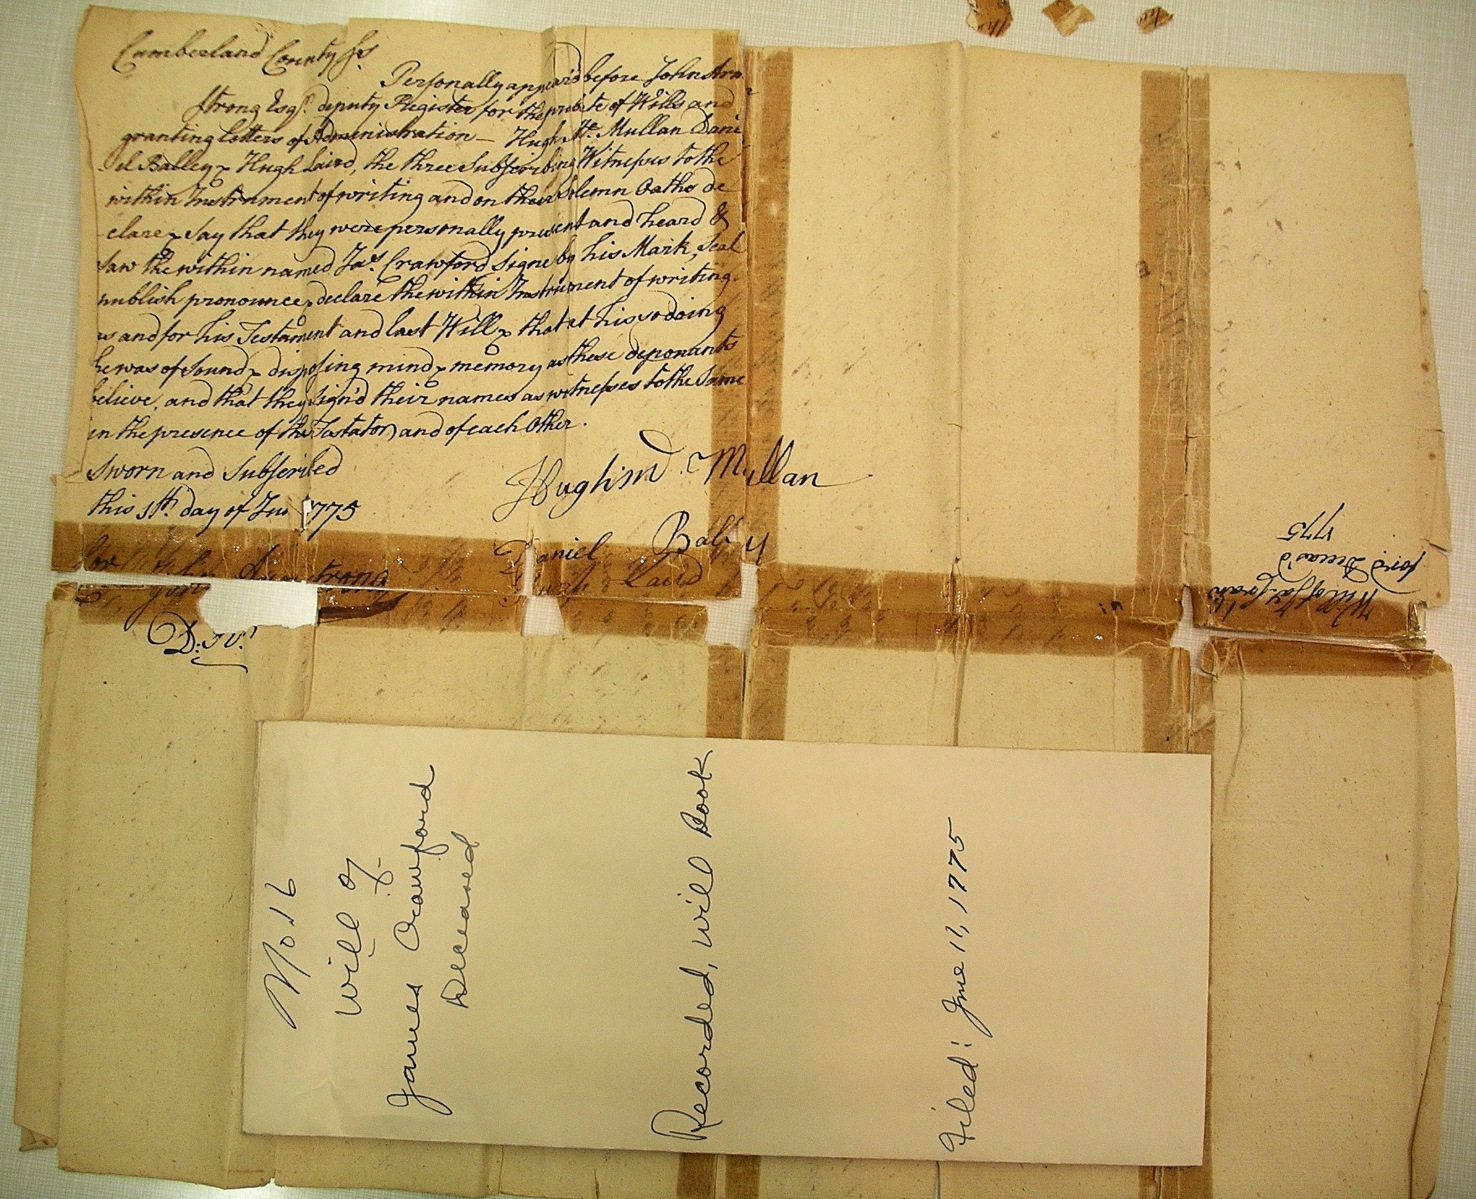 Cumberland County Ss.
Personally appeard before John Arm
strong Esqr. deputy Register for the probate of Wills and
granting Letters of Administration — Hugh Mc. Mullan Dani
el Balley & Hugh Laird, the three Subscribing Witnesses to the
within Instrument of writing and on their Solemn Oaths de
clare & say that they were personally present and heard &
saw the within named Jas. Crawford signe by his Mark, seal
publish pronounce & declare the within Instrument of writing
as and for his Testament and last Will & that at his so doing
he was of sound & disposing mind & memory as these deponants
believe, and that they sign'd their names as witnesses to the same
in the presence of the Tastator) and of each Other.
Sworn and Subscribed
this 11th. day of Jun 1775
Hugh Mc Mullan
Daniel Balley
Hugh Laird
for John Armstrong
D: Rr.
Will of Jas. Craw
ford Deceas'd
1775
No. 16
Will of
James Crawford
Deceased
Recorded, Will Book
Filed: June 11, 1775